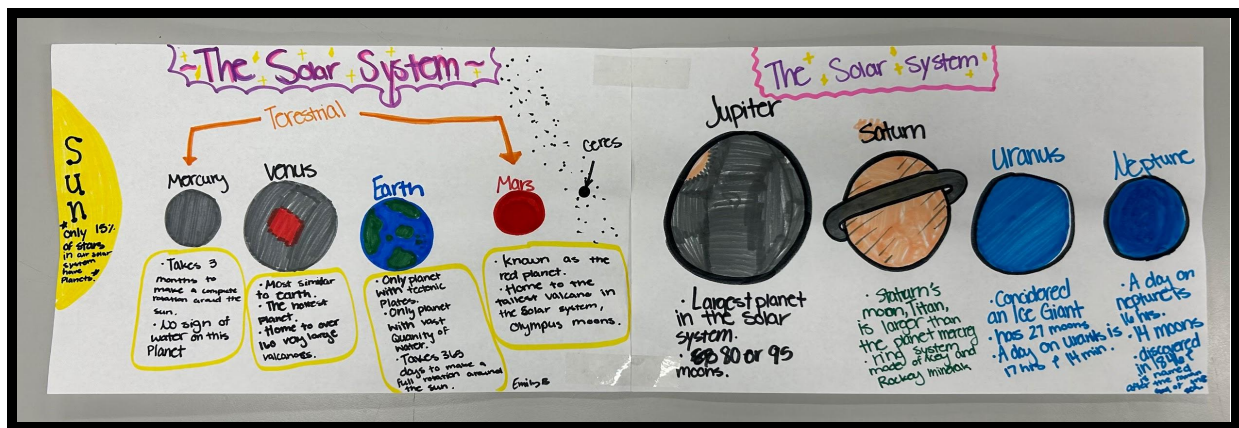 ~The Solar System~
Terestrial
Sun
*only 15%
of stars
in our solar
system
have
Planets.*
Mercury
• Takes 3
months to
make a complete
rotation around the
sun.
• No sign of
water on this
Planet
Venus
• Most similar
to earth.
• The hottest
Planet.
• Home to over
160 very large
valcanoes.
Earth
• Only planet
with tectonic
Plates.
• Only planet
with vast
Quantity of
water.
• Takes 365
days to make a
full rotation around
the sun.
Mars
• Known as the
red planet.
• Home to the
tallest valcano in
the solar system,
Olympus moons.
Emily B
ceres
The Solar System
Jupiter
• Largest planet
in the solar
system.
• 80 or 95
moons.
Saturn
• Staturn's
moon, Titan,
is larger than
the planet mercry
• ring system
made of Icey and
Rockey minerals
Uranus
• Considered
an Ice Giant
• has 27 moons
• A day on uranus is
17 hrs & 14 min.
Neptune
• A day on
neptune is
16 hrs.
• 14 moons
• discovered
in 1846 &
named
after the roman